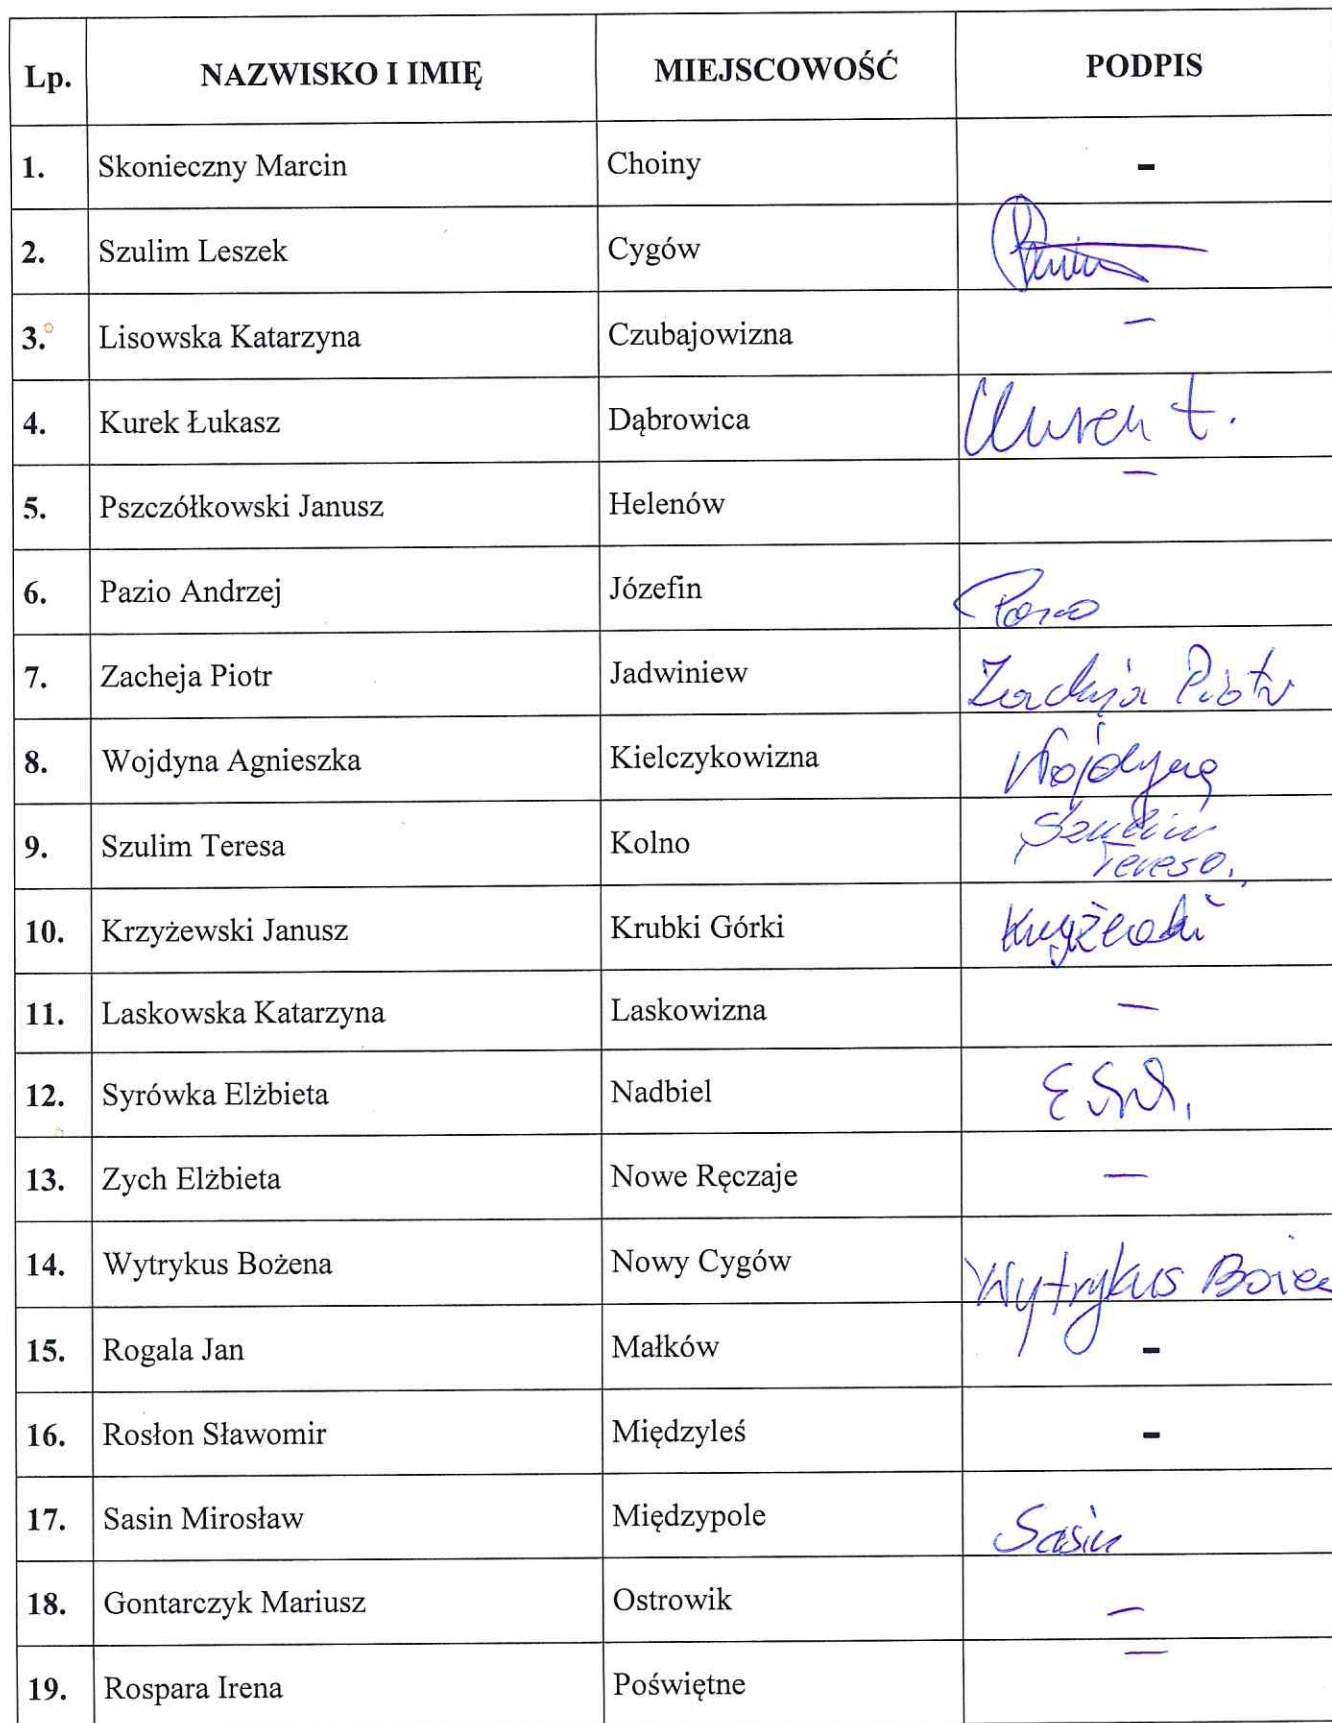 Lp. NAZWISKO I IMIĘ MIEJSCOWOŚĆ PODPIS
1. Skonieczny Marcin Choiny -
2. Szulim Leszek Cygów
3. Lisowska Katarzyna Czubajowizna –
4. Kurek Łukasz Dąbrowica Kurek Ł.
5. Pszczółkowski Janusz Helenów –
6. Pazio Andrzej Józefin Pazio
7. Zacheja Piotr Jadwiniew Zacheja Piotr
8. Wojdyna Agnieszka Kielczykowizna Wojdyna
9. Szulim Teresa Kolno Szulim
Teresa
10. Krzyżewski Janusz Krubki Górki Krzyżewski
11. Laskowska Katarzyna Laskowizna –
12. Syrówka Elżbieta Nadbiel
13. Zych Elżbieta Nowe Ręczaje –
14. Wytrykus Bożena Nowy Cygów Wytrykus Boże
15. Rogala Jan Małków -
16. Rosłon Sławomir Międzyleś -
17. Sasin Mirosław Międzypole Sasin
18. Gontarczyk Mariusz Ostrowik –
19. Rospara Irena Poświętne –